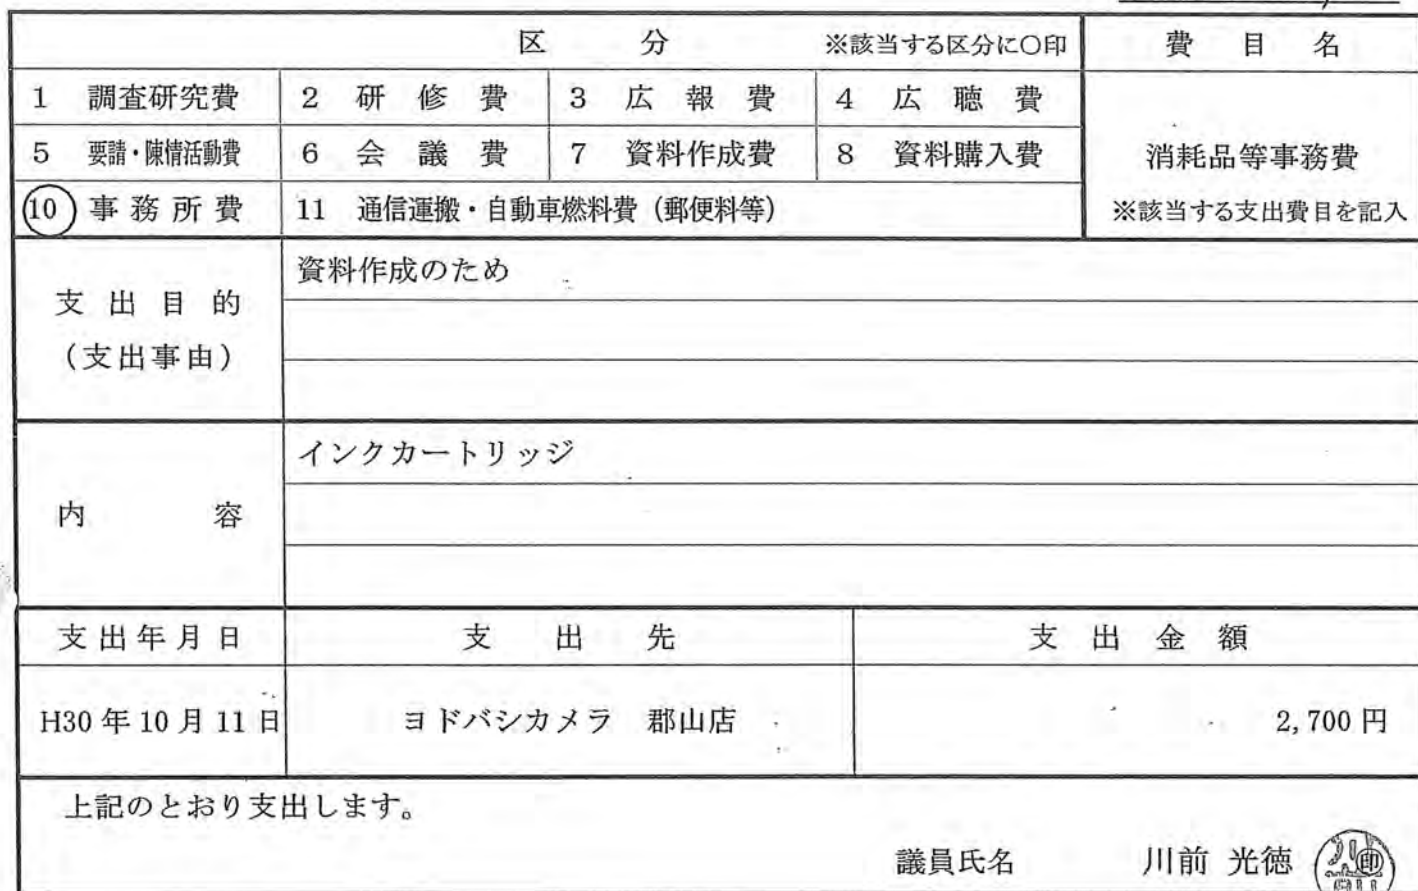 区 分 ※該当する区分に○印 費 目 名
1 調査研究費 2 研 修 費 3 広 報 費 4 広 聴 費
5 要請・陳情活動費 6 会 議 費 7 資料作成費 8 資料購入費 消耗品等事務費
10 事 務 所 費 11 通信運搬・自動車燃料費（郵便料等） ※該当する支出費目を記入
支 出 目 的
（支出事由）
資料作成のため
内 容
インクカートリッジ
支 出 年 月 日 支 出 先 支 出 金 額
H30 年 10 月 11 日 ヨドバシカメラ 郡山店 2,700 円
上記のとおり支出します。
議員氏名 川前 光徳 印